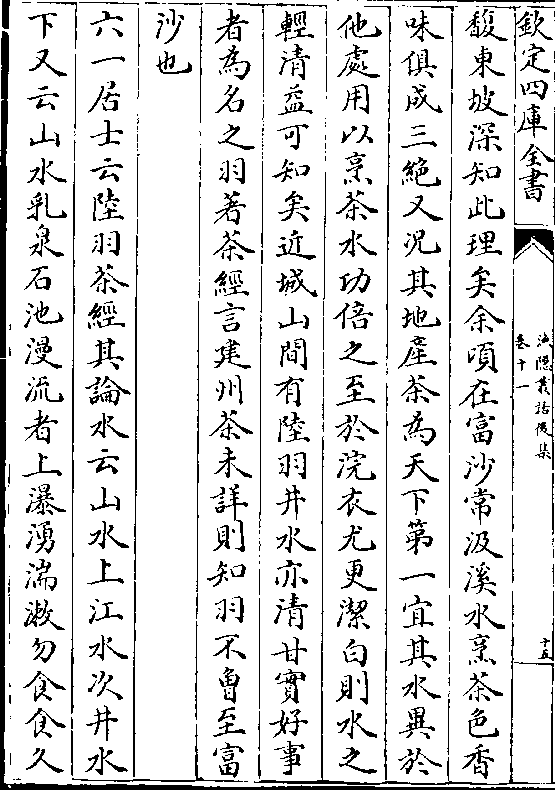 欽定四庫全書
漁隱叢話後集
卷十一
十五
馥東坡深知此理矣余頃在富沙常汲溪水烹茶色香
味俱成三絶又況其地產茶為天下第一宜其水異於
他處用以烹茶水功倍之至於浣衣尤更潔白則水之
輕清益可知矣近城山間有陸羽井水亦清甘實好事
者為名之羽著茶經言建州茶未詳則知羽不曾至富
沙也
六一居士云陸羽茶經其論水云山水上江水次井水
下又云山水乳泉石池漫流者上瀑湧湍漱勿食食久